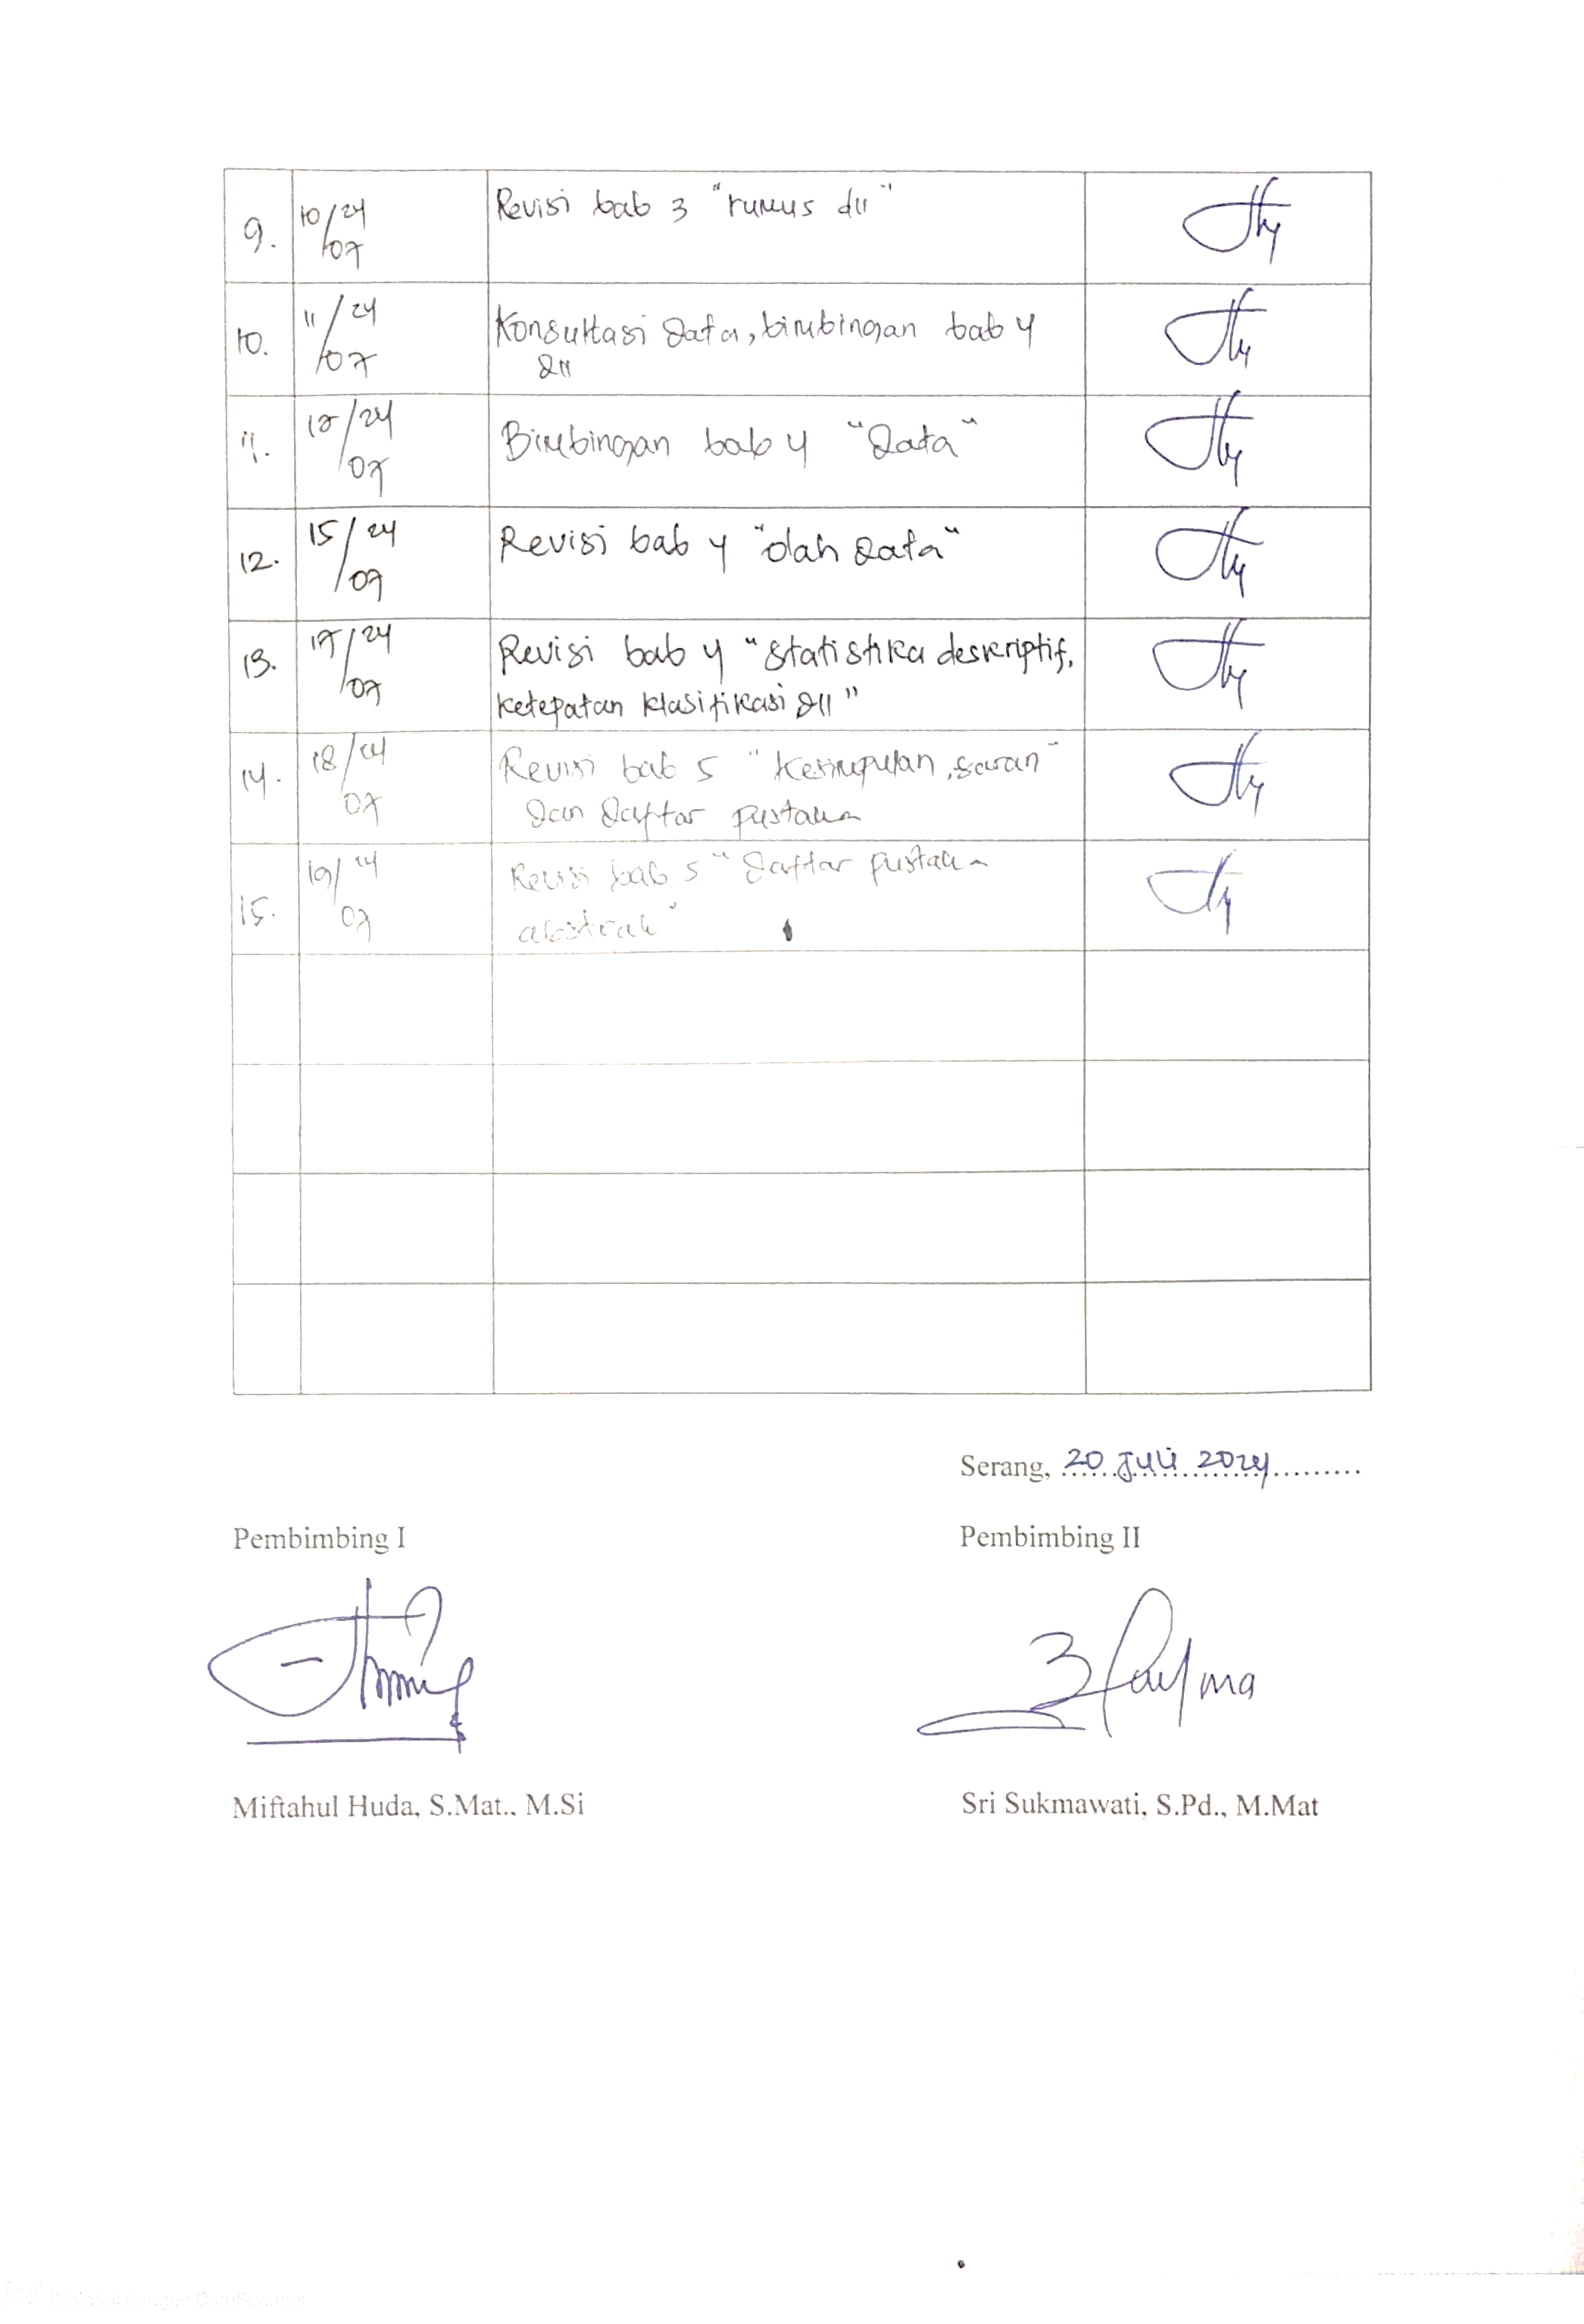 9. 10/24 07 Revisi bab 3 "rumus dll"
10. 11/24 07 Konsultasi data, bimbingan bab 4
dll
11. 12/24 07 Bimbingan bab 4 "data"
12. 15/24 07 Revisi bab 4 "olah data"
13. 17/24 07 Revisi bab 4 "statistika deskriptif,
ketepatan klasifikasi dll"
14. 18/24 07 Revisi bab 5 "kesimpulan, saran"
dan daftar pustaka
15. 19/24 07 Revisi bab 5 "daftar pustaka
abstrak"
Serang, 20 Juli 2024
Pembimbing I
Pembimbing II
Miftahul Huda, S.Mat., M.Si
Sri Sukmawati, S.Pd., M.Mat